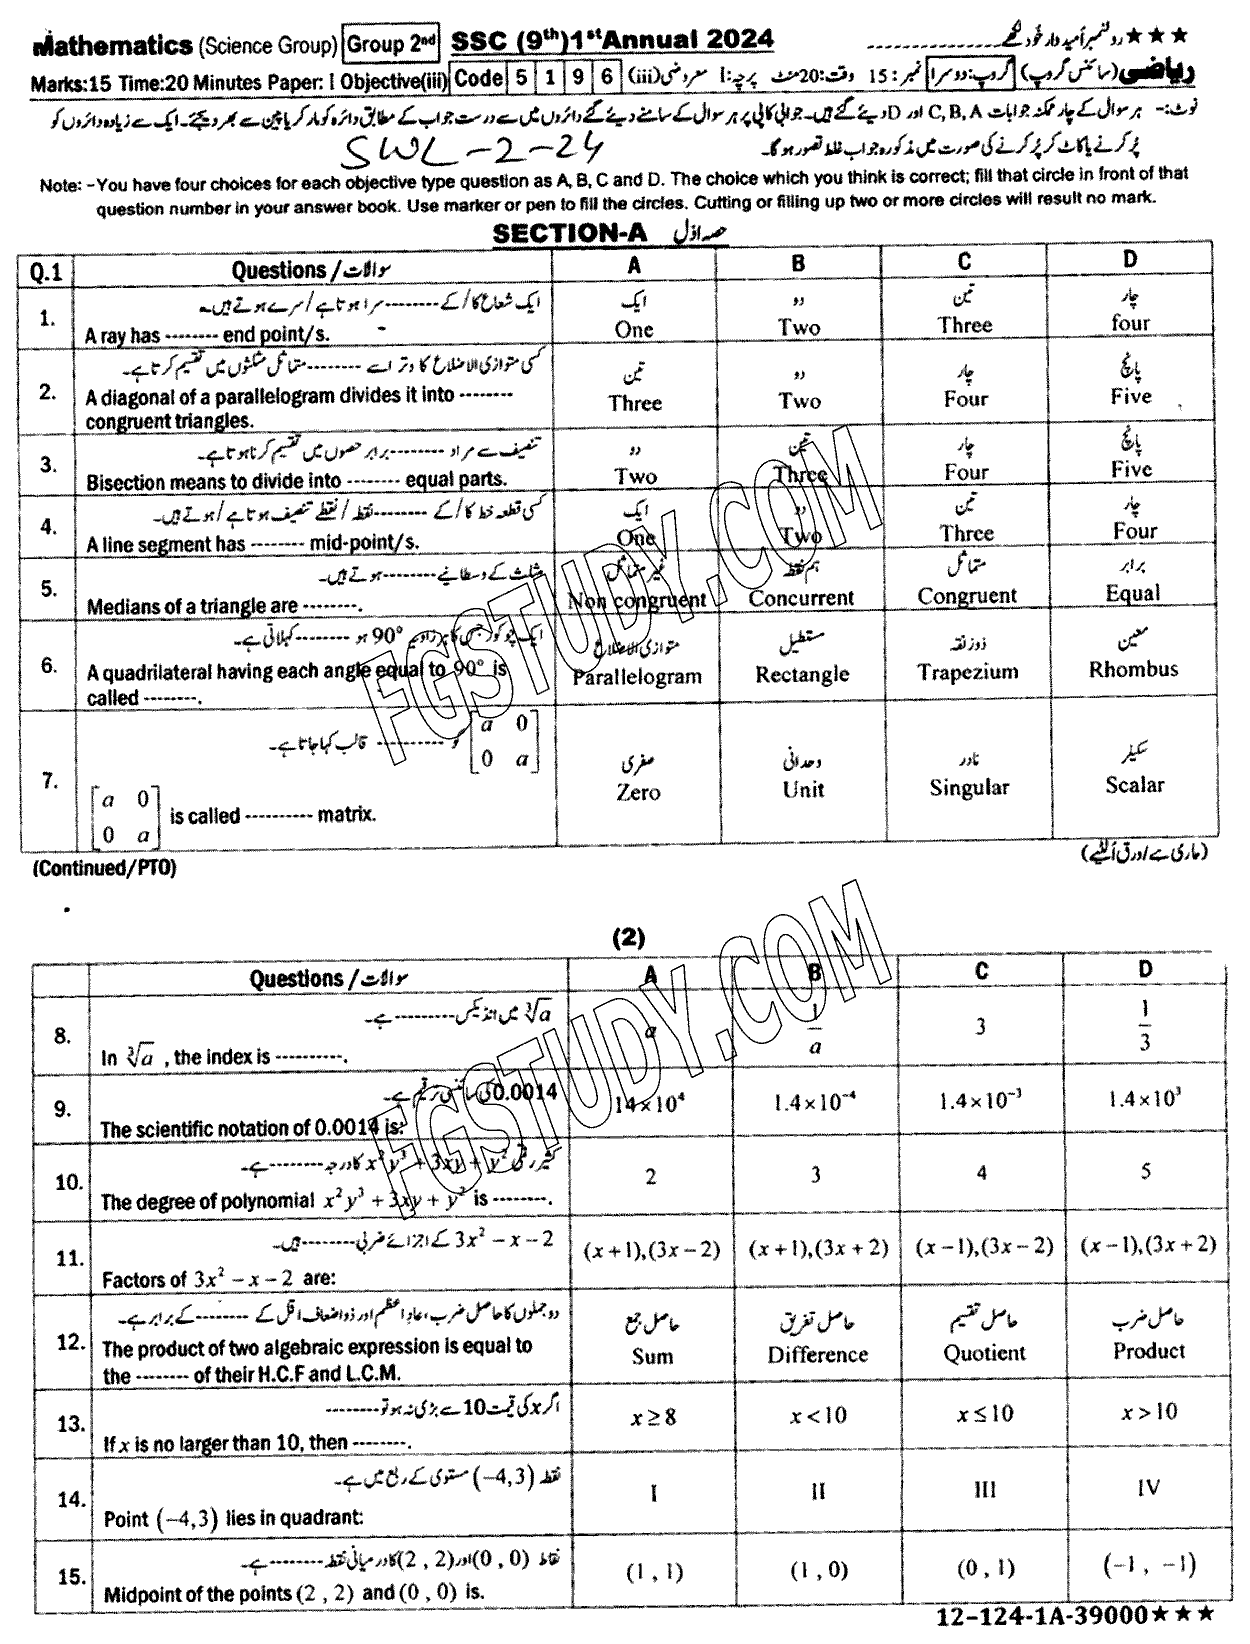 Mathematics (Science Group) Group 2nd SSC (9th) 1st Annual 2024 رولنمبر اُمیدوار خُود لکھے ★★★
Marks:15 Time:20 Minutes Paper: I Objective(iii) Code 5 1 9 6 ریاضی (سائنس گروپ) گروپ: دوسرا نمبر: 15 وقت: 20 منٹ پرچہ: I معروضی (iii)
نوٹ:- ہر سوال کے چار ممکنہ جوابات C, B, A اور D دیئے گئے ہیں۔ جوابی کاپی پر ہر سوال کے سامنے دیئے گئے دائروں میں سے درست جواب کے مطابق دائرہ کو مارکر یا پین سے بھر دیجئے۔ ایک سے زیادہ دائروں کو
پُر کرنے یا کاٹ کر پُر کرنے کی صورت میں مذکورہ جواب غلط تصور ہو گا۔
SWL-2-24
Note: -You have four choices for each objective type question as A, B, C and D. The choice which you think is correct; fill that circle in front of that
question number in your answer book. Use marker or pen to fill the circles. Cutting or filling up two or more circles will result no mark.
SECTION-A حصہ اوّل
Q.1 Questions / سوالات A B C D
1. ایک شعاع کا/کے -------- سرا ہوتا ہے/سرے ہوتے ہیں۔ ایک دو تین چار
A ray has -------- end point/s. One Two Three four
2. کسی متوازی الاضلاع کا وتر اسے -------- متماثل مثلثوں میں تقسیم کرتا ہے۔ تین دو چار پانچ
A diagonal of a parallelogram divides it into -------- Three Two Four Five
congruent triangles.
3. تنصیف سے مراد -------- برابر حصوں میں تقسیم کرنا ہوتا ہے۔ دو تین چار پانچ
Bisection means to divide into -------- equal parts. Two Three Four Five
4. کسی قطعہ خط کا/کے -------- نقطہ/نقطے تنصیف ہوتا ہے/ہوتے ہیں۔ ایک دو تین چار
A line segment has -------- mid-point/s. One Two Three Four
5. مثلث کے وسطانیے -------- ہوتے ہیں۔ غیر متماثل ہم نقطہ متماثل برابر
Medians of a triangle are --------. Non congruent Concurrent Congruent Equal
6. ایک چوکور جس کا ہر زاویہ 90° ہو -------- کہلاتی ہے۔ متوازی الاضلاع مستطیل ذوزنقہ معین
A quadrilateral having each angle equal to 90° is Parallelogram Rectangle Trapezium Rhombus
called --------.
7. [a 0; 0 a] کو ---------- قالب کہا جاتا ہے۔ صفری وحدانی نادر سکیلر
[a 0; 0 a] is called ---------- matrix. Zero Unit Singular Scalar
(Continued/PTO) (جاری ہے/ورق اُلٹیے)
(2)
Questions / سوالات A B C D
8. ∛a میں انڈیکس --------- ہے۔
In ∛a , the index is ----------. a 1/a 3 1/3
9. 0.0014 کی سائنسی ترقیم ہے۔
The scientific notation of 0.0014 is: 14×10⁴ 1.4×10⁻⁴ 1.4×10⁻³ 1.4×10³
10. کثیر رقمی x²y³ + 3xy + y² کا درجہ -------- ہے۔
The degree of polynomial x²y³ + 3xy + y² is --------. 2 3 4 5
11. 3x² − x − 2 کے اجزائے ضربی -------- ہیں۔
Factors of 3x² − x − 2 are: (x+1),(3x−2) (x+1),(3x+2) (x−1),(3x−2) (x−1),(3x+2)
12. دو جملوں کا حاصل ضرب، عادِ اعظم اور ذواضعاف اقل کے -------- کے برابر ہے۔ حاصل جمع حاصل تفریق حاصل تقسیم حاصل ضرب
The product of two algebraic expression is equal to Sum Difference Quotient Product
the -------- of their H.C.F and L.C.M.
13. اگر x کی قیمت 10 سے بڑی نہ ہو تو --------
If x is no larger than 10, then --------. x ≥ 8 x < 10 x ≤ 10 x > 10
14. نقطہ (−4,3) مستوی کے ربع میں ہے۔
Point (−4,3) lies in quadrant: I II III IV
15. نقاط (0 , 0) اور (2 , 2) کا درمیانی نقطہ -------- ہے۔
Midpoint of the points (2 , 2) and (0 , 0) is. (1 , 1) (1 , 0) (0 , 1) (−1 , −1)
12-124-1A-39000★★★
FGSTUDY.COM
FGSTUDY.COM